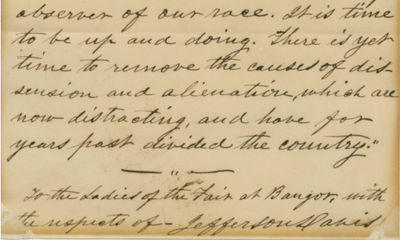 observer of our race. It is time
to be up and doing. There is yet
time to remove the causes of dis-
sension and alienation, which are
now distracting, and have for
years past divided the country."
To the Ladies of the Fair at Bangor, with
the respects of - Jefferson Davis